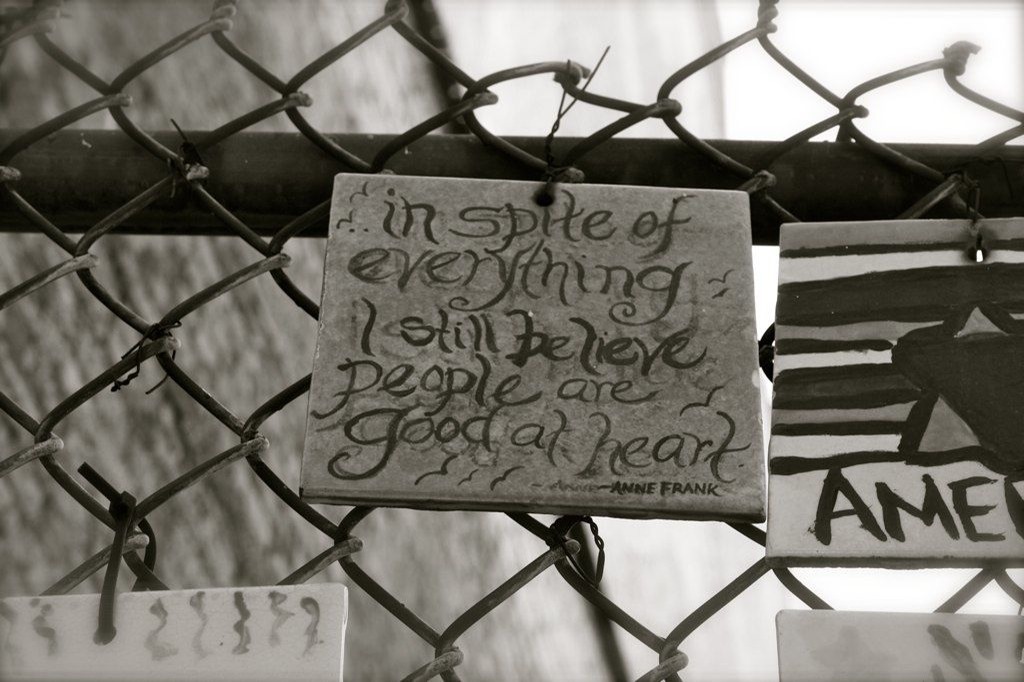 in spite of
everything
I still believe
people are
good at heart.
ANNE FRANK
AME